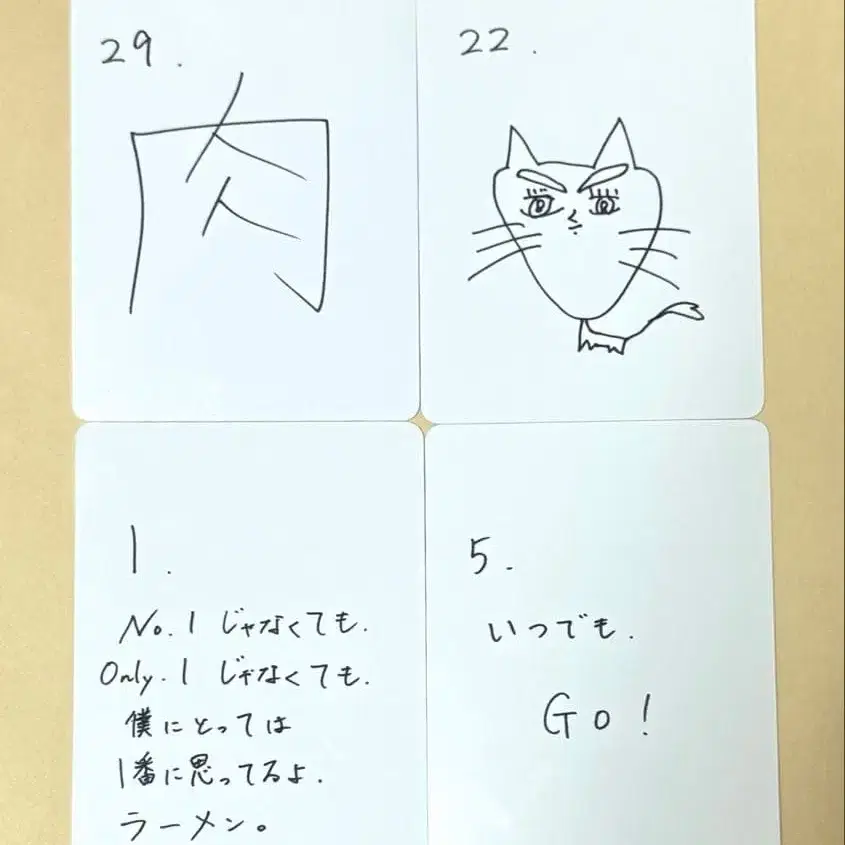 29.
肉
22.
1.
No.1 じゃなくても.
Only.1 じゃなくても.
僕にとっては
1番に思ってるよ.
ラーメン。
5.
いつでも.
Go!